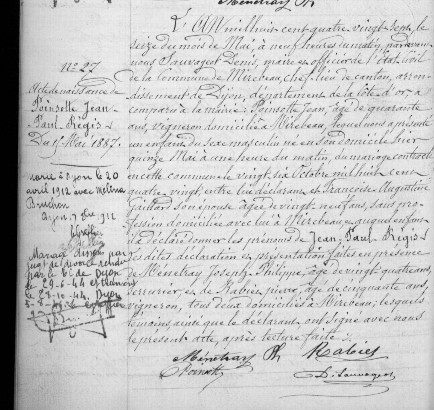 Ménétray Ph
N° 27
Acte de naissance de
Poinselle Jean
Paul Régis
Du 15 Mai 1887.
marié à Dijon le 20
avril 1912 avec Mélina
Buchon
Dijon 7 1912
Mariage dissous par
jugt de divorce rendu
par le de Dijon
le 29-6-44
le 28-10-44. Dijon
L'An mil huit cent quatre vingt sept, le
seize du mois de Mai, à neuf heures du matin, par devant
nous Sauvageot Denis, maire et officier de l'état civil
de la Commune de Mirebeau, chef-lieu de canton, arron-
dissement de Dijon, département de la Côte d'or a
comparu à la mairie: Poinselle Jean, âgé de quarante
ans, vigneron domicilié à Mirebeau, lequel nous a présenté
un enfant du sexe masculin né en son domicile hier
quinze Mai à une heure du matin, du mariage contracté
en cette commune le vingt six Octobre mil huit cent
quatre vingt, entre lui déclarant et Françoise Augustine
Guitard son épouse âgée de vingt neuf ans, sans pro-
fession domiciliée avec lui à Mirebeau, auquel enfant
il a déclaré donner les prénoms de Jean, Paul Régis
les dites déclaration et présentation faites en présence
de Ménétray Joseph Philippe, âgé de vingt quatre ans,
serrurier et de Rabiet pierre, âgé de cinquante ans,
vigneron, tous deux domiciliés à Mirebeau; lesquels
témoins ainsi que le déclarant, ont signé avec nous
le présent acte, après lecture faite.
Ménétray Ph Rabiet
D. Sauvageot